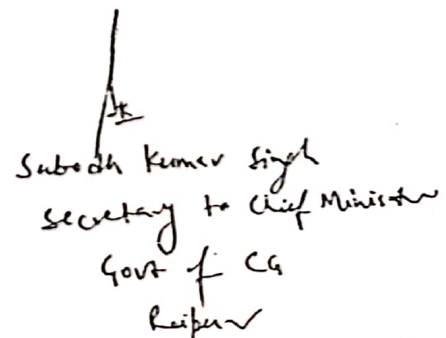 Subodh Kumar Singh
Secretary to Chief Minister
Govt of CG
Raipur